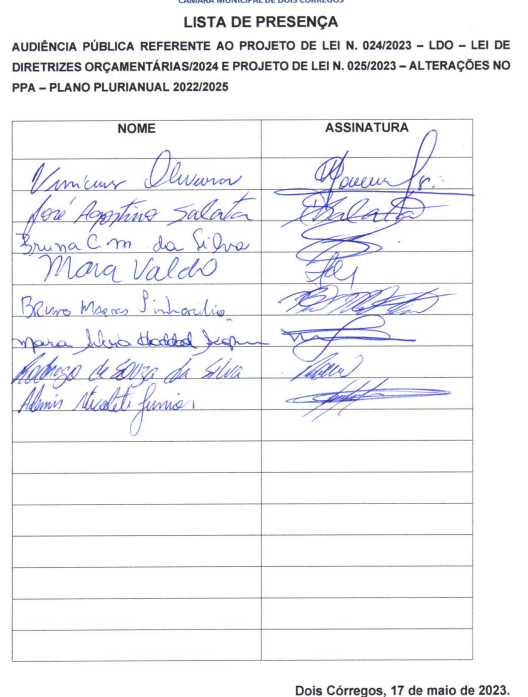 CÂMARA MUNICIPAL DE DOIS CÓRREGOS
LISTA DE PRESENÇA
AUDIÊNCIA PÚBLICA REFERENTE AO PROJETO DE LEI N. 024/2023 – LDO – LEI DE
DIRETRIZES ORÇAMENTÁRIAS/2024 E PROJETO DE LEI N. 025/2023 – ALTERAÇÕES NO
PPA – PLANO PLURIANUAL 2022/2025
NOME ASSINATURA
Vinicius Oliveira
José Agostino Salata Salata
Bruna C. m. da Silva
Mara Valdo
Bruno
Mara Silvia Haddad
Rodrigo de Souza da Silva
Nicoleti Junior
Dois Córregos, 17 de maio de 2023.